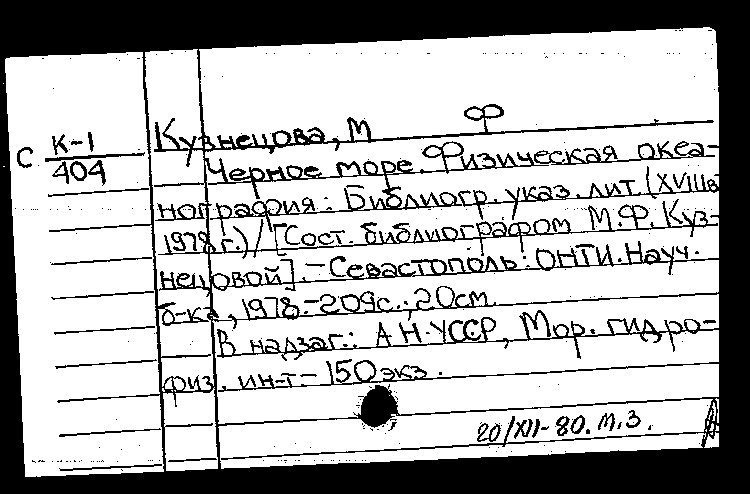 Кузнецова, М Ф
С К-1
404
Черное море. Физическая океа-
нография: Библиогр. указ. лит. (XVIIIв
1978 г.) / [Сост. библиографом М.Ф. Куз-
нецовой]. - Севастополь: ОНТИ. Науч.
б-ка, 1978. - 209с.; 20см.
В надзаг.: АН УССР, Мор. гидро-
физ. ин-т - 150экз.
20/XII-80. М.З.